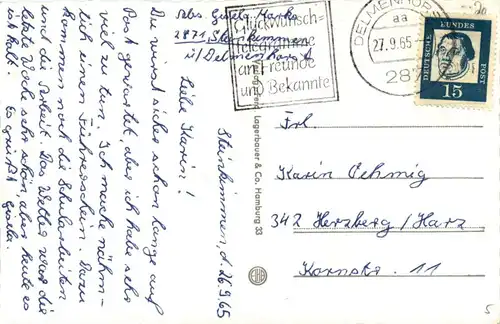 Abs. Gisela
2871 Steinkimmen
ü/Delmenhorst
Steinkimmen, d. 26.9.65
Liebe Karin!
Du wirst sicher schon lange auf
Post gewartet, aber ich habe sehr
viel zu tun. Ich mache näm-
lich einen Führerschein. Dazu
kommen noch die Schularbeiten
und die Arbeit. Das Wetter war die
letzte Woche sehr schön, aber heute es
ist kalt. Es grüßt
Gisela.
Glückwunsch-
telegramme
an Freunde
und Bekannte
DELMENHORST
aa
27.9.65
287
DEUTSCHE BUNDESPOST
15
Lagerbauer & Co. Hamburg 33
Frl.
Karin Oehmig
342 Herzberg/Harz
Kornstr. 11
5